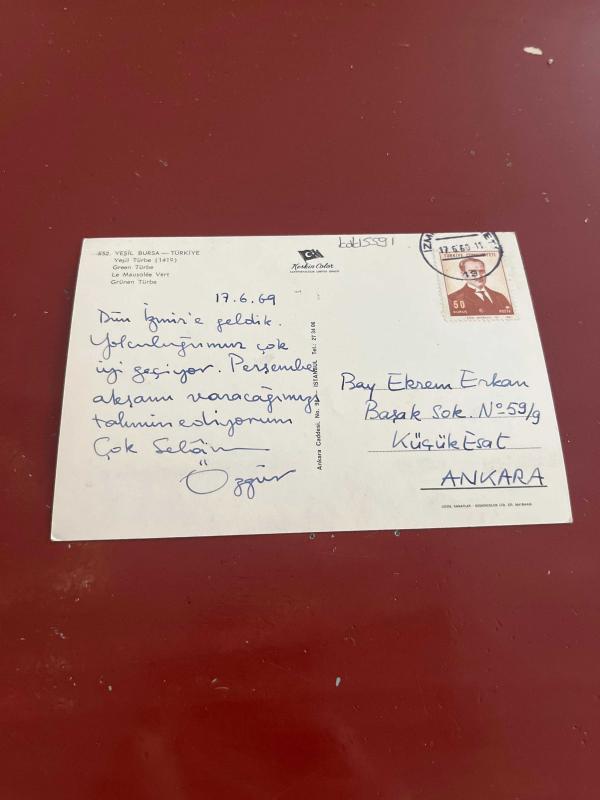 652. YEŞİL BURSA — TÜRKİYE
Yeşil Türbe (1419)
Green Türbe
Le Mausolée Vert
Grünen Türbe
Keskin Color
bobl5591
17.6.69
Dün İzmir'e geldik.
Yolculuğumuz çok
iyi geçiyor. Perşembe
akşamı varacağımızı
tahmin ediyorum
Çok Selâm
Özgür
Ankara Caddesi. No. İSTANBUL Tel.: 27 34 06
17.6.69
TÜRKİYE CUMHURİYETİ
50
KURUŞ
POSTA
Bay Ekrem Erkan
Başak Sok. No 59/9
Küçük Esat
ANKARA